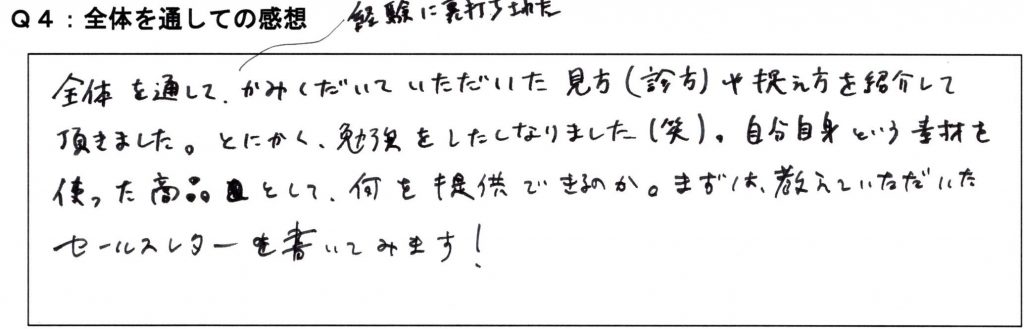 Q4:全体を通しての感想
経験に裏打ちされた
全体を通して、かみくだいていただいた見方(診方)や捉え方を紹介して
頂きました。とにかく、勉強をしたくなりました(笑)。自分自身という素材を
使った商品として、何を提供できるのか。まずは、教えていただいた
セールスレターを書いてみます!